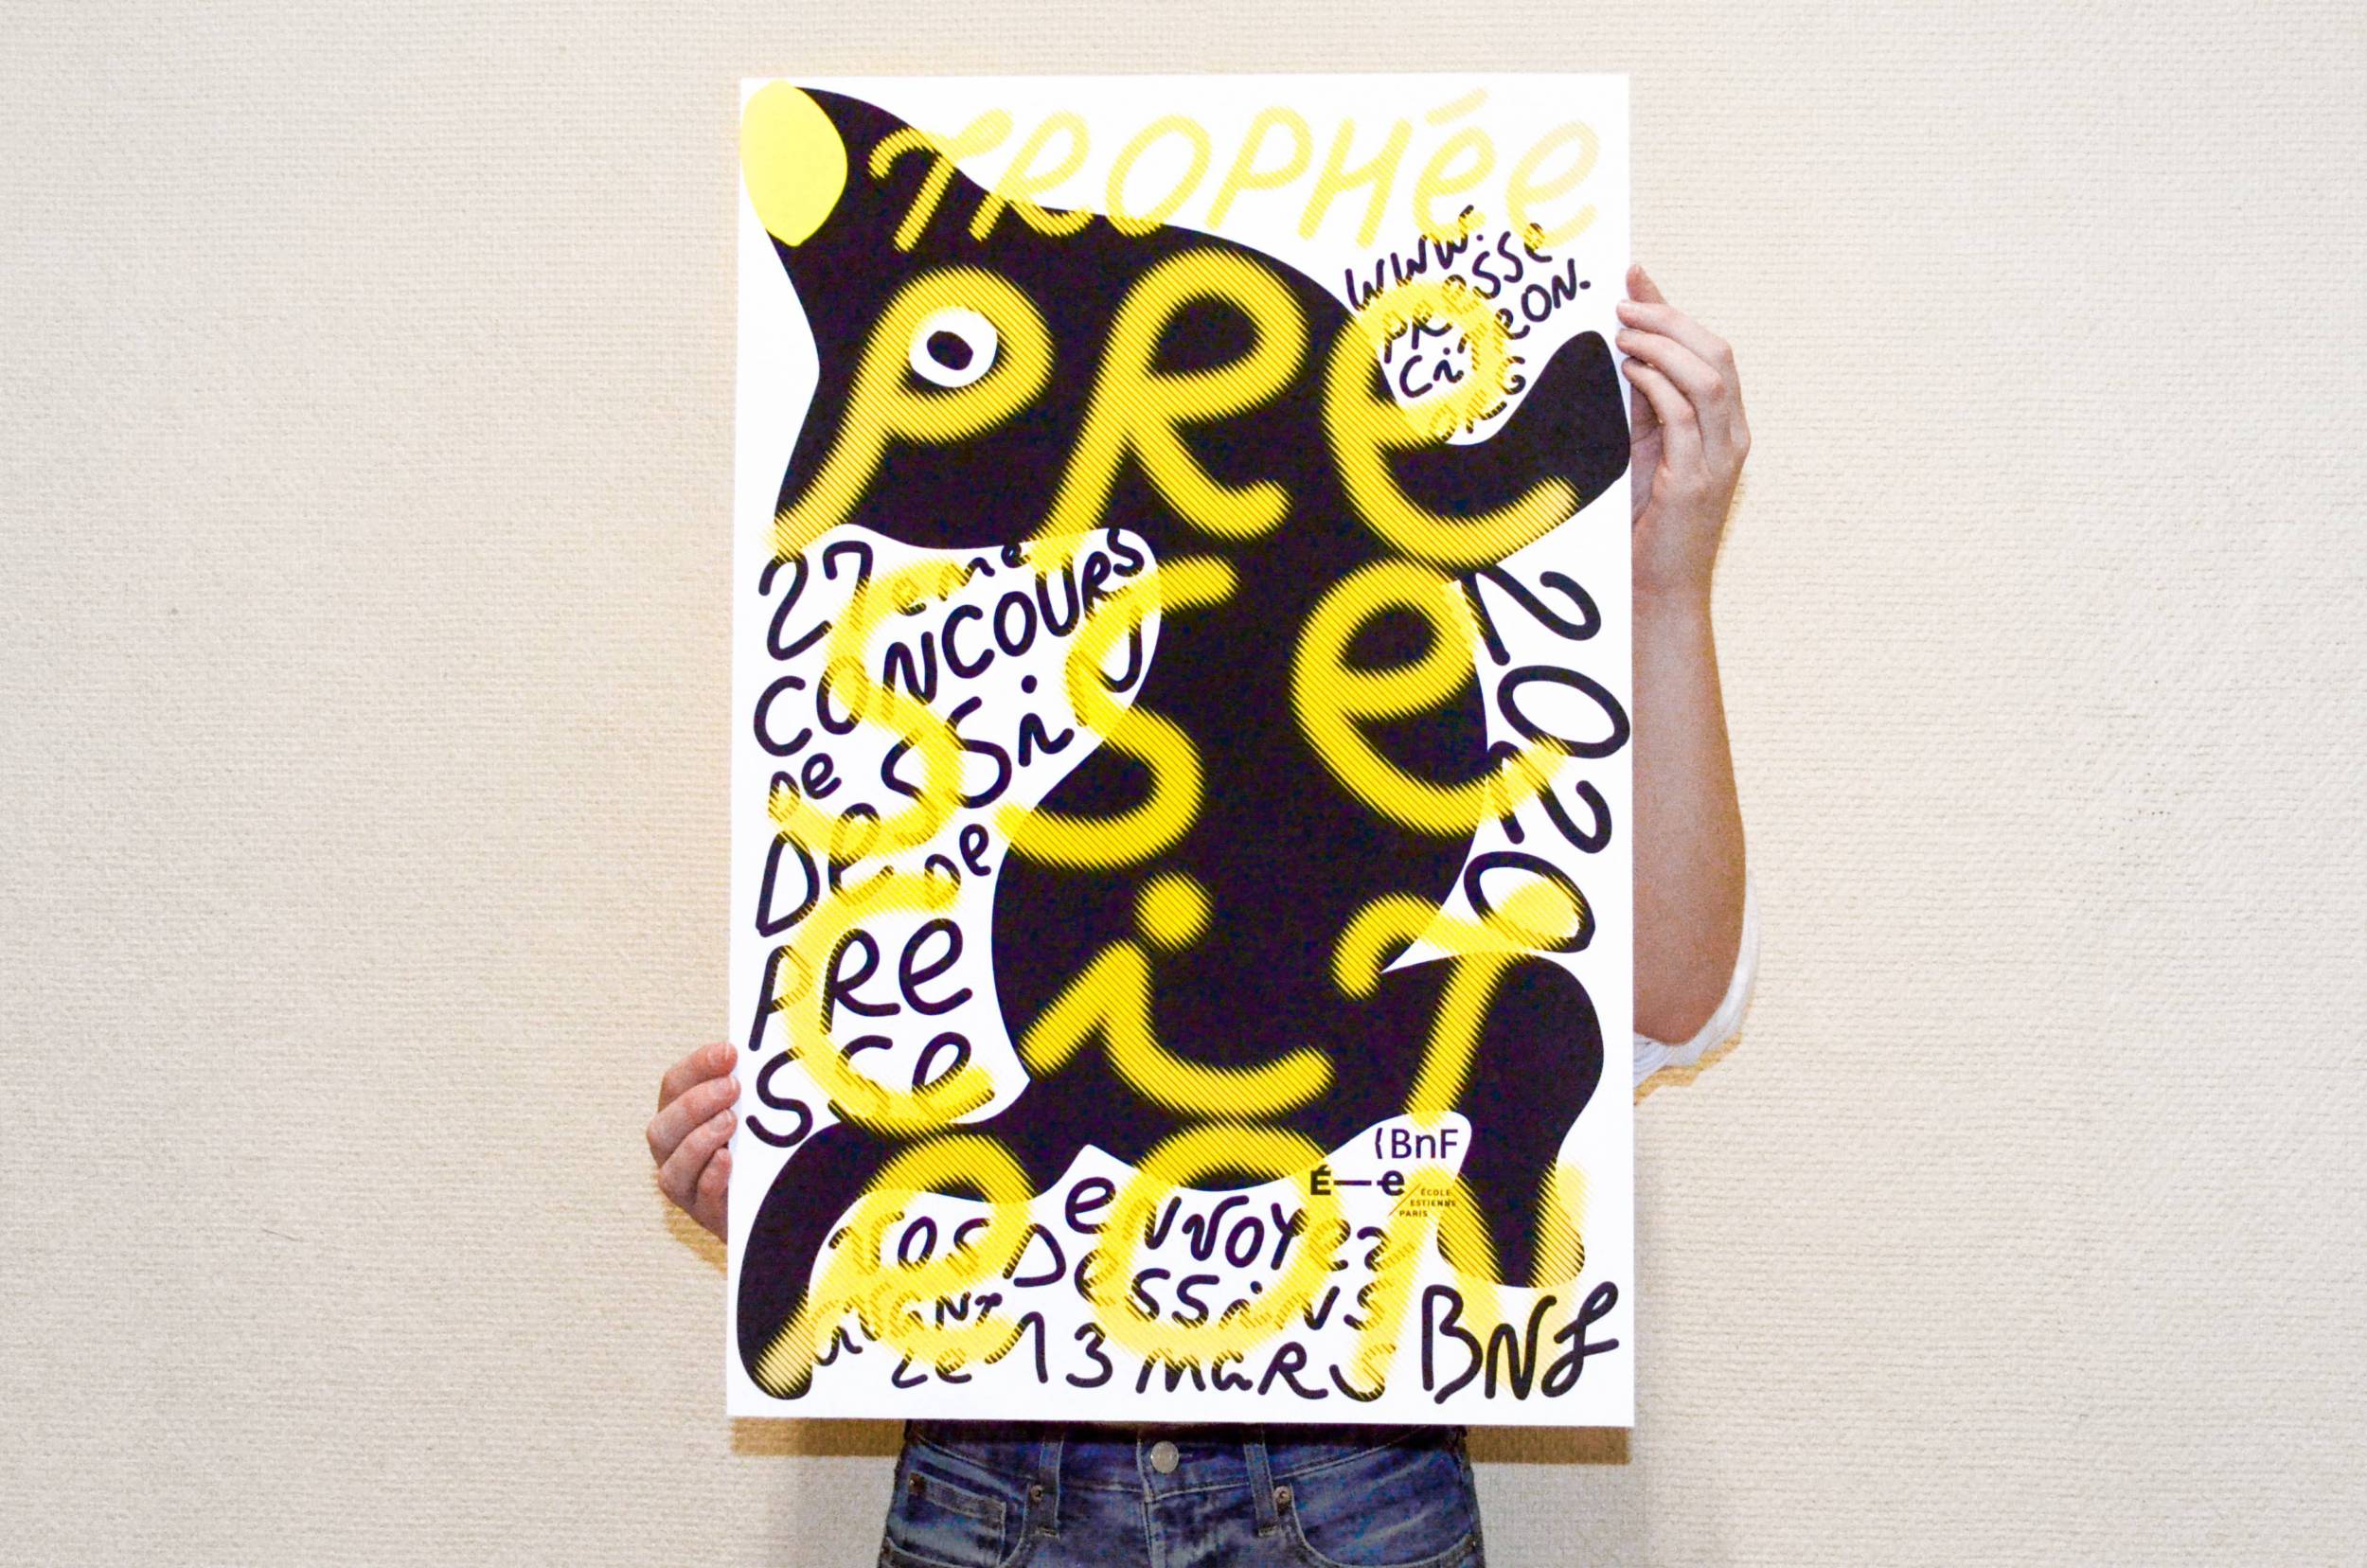 TROPHÉE
PRE
SSE
CiT
RON
www.
PRESSE
CiTRON.
ORG
27ème
CONCOURS
De DeSSiN
De
PRe
SSe
2020
(BnF
É—e
ÉCOLE
ESTIENNE
PARIS
eNVOYez
VOS DeSSiNS
aVANT
Le 13 MaRS
BNF